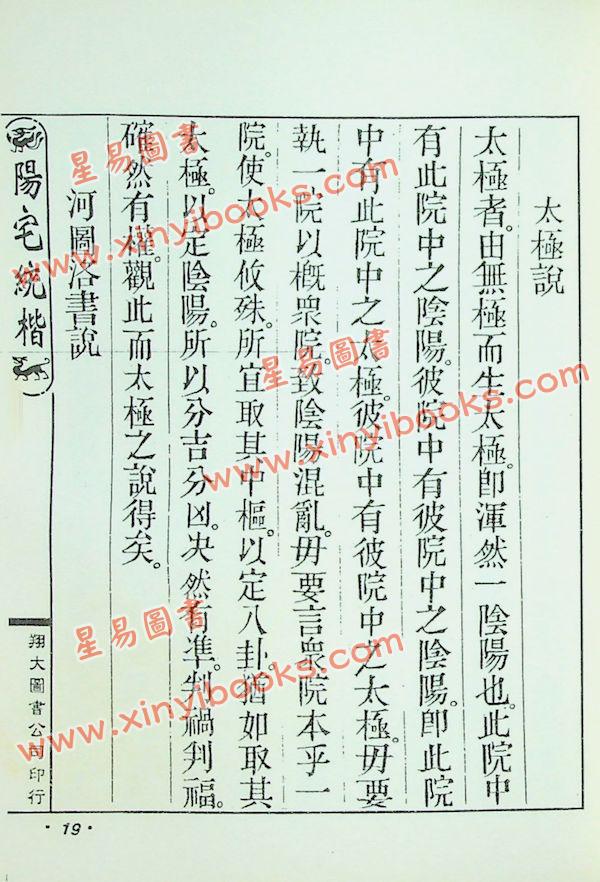 太極說
太極者。由無極而生太極。卽渾然一陰陽也。此院中
有此院中之陰陽。彼院中有彼院中之陰陽。卽此院
中有此院中之太極。彼院中有彼院中之太極。毋要
執一院以概衆院。致陰陽混亂。毋要言衆院本乎一
院。使太極攸殊。所宜取其中樞。以定八卦。猶如取其
太極。以定陰陽。所以分吉分凶。决然有準。判禍判福。
確然有權。觀此而太極之說得矣。
河圖洛書說
陽宅統楷
翔大圖書公司印行
·19·
星易圖書
www.xinyibooks.com
星易圖書
www.xinyibooks.com
星易圖書
www.xinyibooks.com